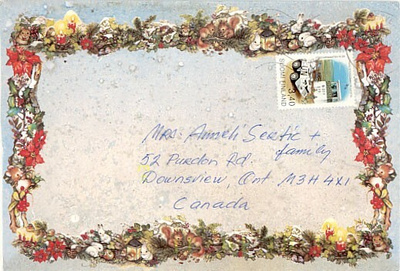 Mrs. Anneli Sertic +
family
52 Purdon Rd.
Downsview, Ont M3H 4X1
Canada
3,40